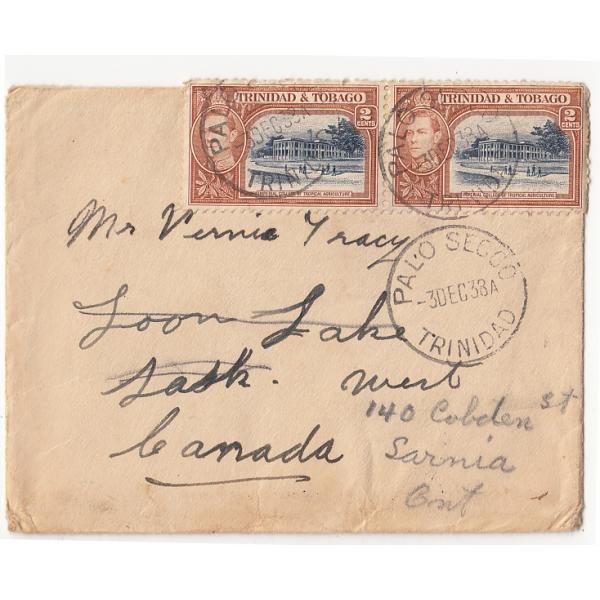 TRINIDAD & TOBAGO
2
CENTS
IMPERIAL COLLEGE OF TROPICAL AGRICULTURE
TRINIDAD & TOBAGO
2
CENTS
IMPERIAL COLLEGE OF TROPICAL AGRICULTURE
PALO
3DEC38A
TRINI
PALO S
3DEC38A
TRI
Mr Vernie Tracy
PALO SECCO
-3DEC38A
TRINIDAD
Loon Lake
Sask. West
Canada
140 Cobden St
Sarnia
Ont